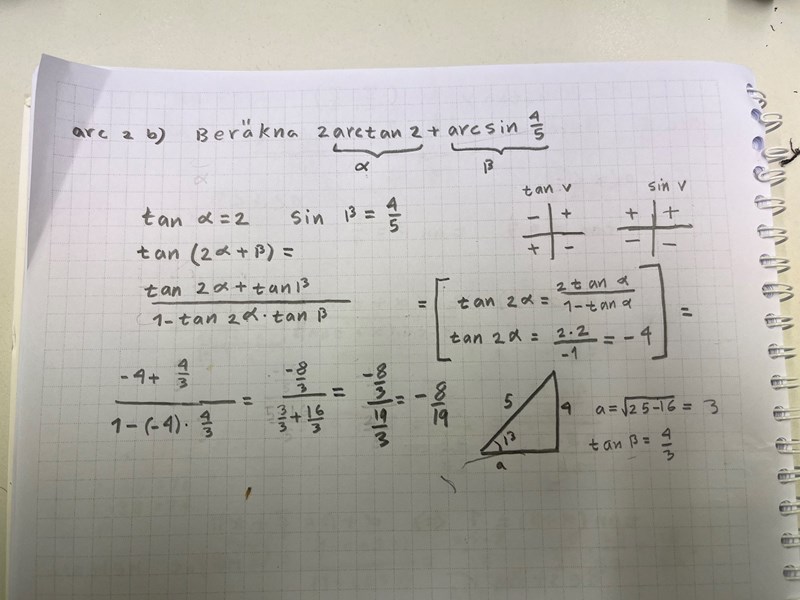 arc 2 b) Beräkna 2 arctan 2 + arcsin 4/5
α β
tan v sin v
- + + +
+ - - -
tan α = 2 sin β = 4/5
tan (2α + β) =
(tan 2α + tan β)/(1 - tan 2α · tan β) = [tan 2α = (2 tan α)/(1 - tan α)
tan 2α = (2·2)/(-1) = -4] =
(-4 + 4/3)/(1 - (-4) · 4/3) = (-8/3)/(3/3 + 16/3) = (-8/3)/(19/3) = - 8/19
5 4 β a
a = √(25-16) = 3
tan β = 4/3